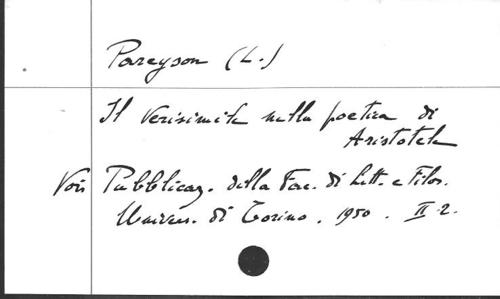 Pareyson (L.)
Il verisimile nella poetica di
Aristotele
Voir Pubblicaz. della Fac. di Lett. e Filos.
Univers. di Torino. 1950. II-2.